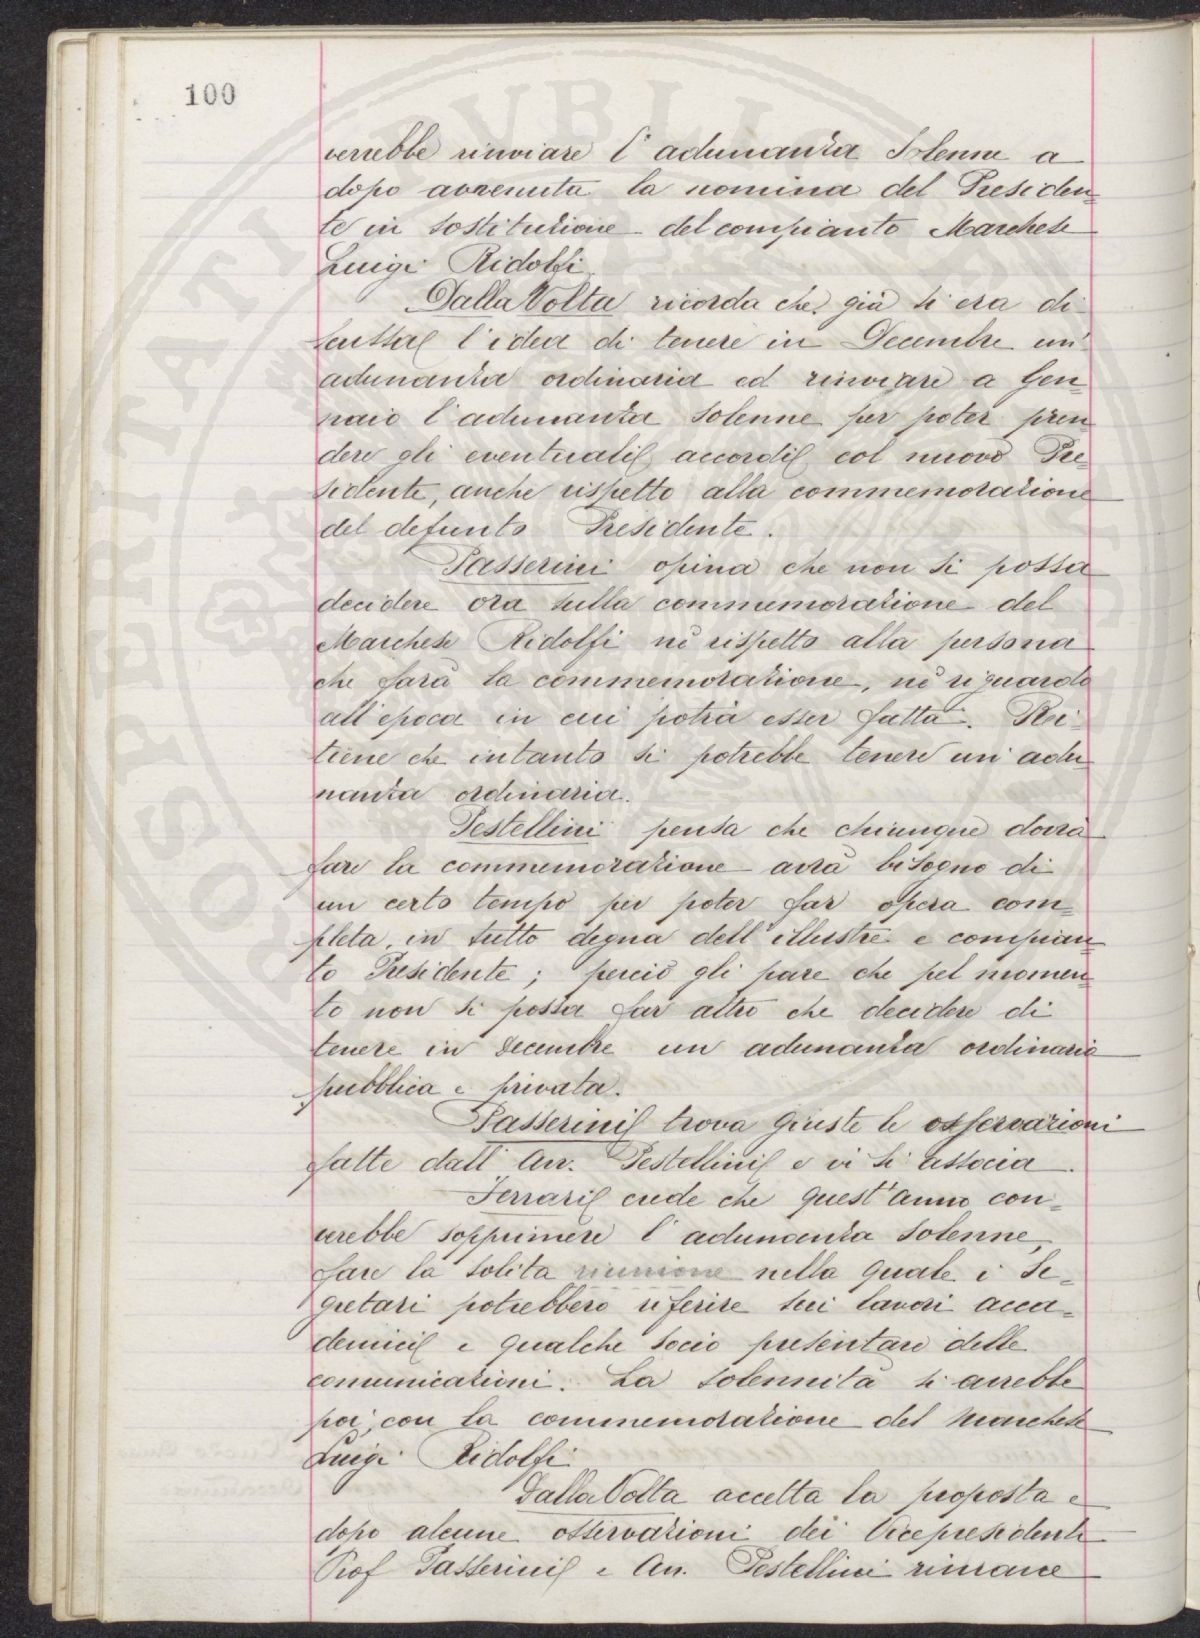 100
verrebbe rinviare l'adunanza Solenne a
dopo avvenuta la nomina del Presiden=
te in sostituzione del compianto Marchese
Luigi Ridolfi.
Dalla Volta ricorda che già si era di
scussa l'idea di tenere in Decembre un'
adunanza ordinaria ed rinviare a Gen=
naio l'adunanza solenne per poter pren=
dere gli eventuali accordi col nuovo Pre=
sidente, anche rispetto alla commemorazione
del defunto Presidente.
Passerini opina che non si possa
decidere ora sulla commemorazione del
Marchese Ridolfi nè rispetto alla persona
che farà la commemorazione, nè riguardo
all'epoca in cui potrà esser fatta. Ri=
tiene che intanto si potrebbe tenere un'adu=
nanza ordinaria.
Pestellini pensa che chiunque dovrà
fare la commemorazione avrà bisogno di
un certo tempo per poter far opera com=
pleta, in tutto degna dell'illustre e compian=
to Presidente; perciò gli pare che pel momen=
to non si possa far altro che decidere di
tenere in Decembre un adunanza ordinaria
pubblica e privata.
Passerini trova giuste le osservazioni
fatte dall'Avv. Pestellini e vi si associa.
Ferrari crede che quest'anno con=
verebbe sopprimere l'adunanza solenne,
fare la solita riunione nella quale i Se=
gretari potrebbero riferire sui lavori acca=
demici e qualche socio presentare delle
comunicazioni. La solennità si avrebbe
poi, con la commemorazione del Marchese
Luigi Ridolfi
Dalla Volta accetta la proposta e
dopo alcune osservazioni dei Vicepresidenti
Prof Passerini e Avv. Pestellini rimane